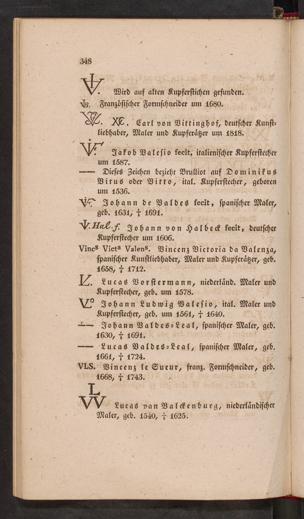 348
Wird auf alten Kupferstichen gefunden.
Französischer Formschneider um 1680.
Carl von Vittinghof, deutscher Kunst-
liebhaber, Maler und Kupferätzer um 1818.
Jakob Valesio fecit, italienischer Kupferstecher
um 1587.
— Dieses Zeichen bezieht Brulliot auf Dominikus
Vitus oder Vitto, ital. Kupferstecher, geboren
um 1536.
Johann de Valdes fecit, spanischer Maler,
geb. 1631, † 1691.
Hal.f. Johann von Halbeck fecit, deutscher
Kupferstecher um 1606.
Vincs Victa Valens. Vincenz Victoria da Valenza,
spanischer Kunstliebhaber, Maler und Kupferätzer, geb.
1658, † 1712.
Lucas Vorstermann, niederländ. Maler und
Kupferstecher, geb. um 1578.
Johann Ludwig Valesio, ital. Maler und
Kupferstecher, geb. um 1561, † 1640.
— Johann Valdes-Leal, spanischer Maler, geb.
1630, † 1691.
— Lucas Valdes-Leal, spanischer Maler, geb.
1661, † 1724.
VLS. Vincenz le Sueur, franz. Formschneider, geb.
1668, † 1743.
L
VV Lucas van Valckenburg, niederländischer
Maler, geb. 1540, † 1625.